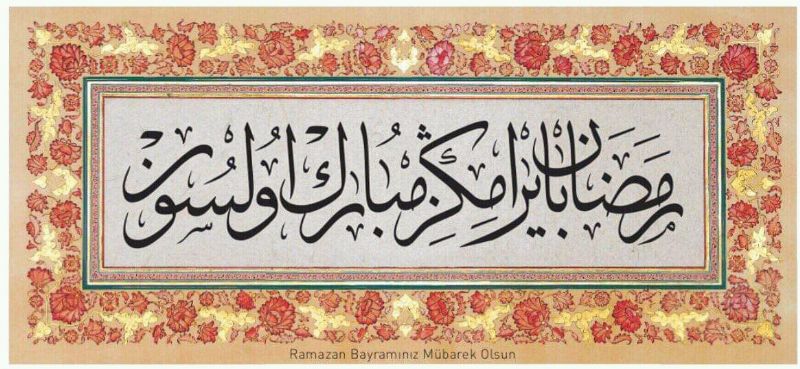 رَمَضَان بايرامڭز مُبارك اُولسُون
Ramazan Bayramınız Mübarek Olsun